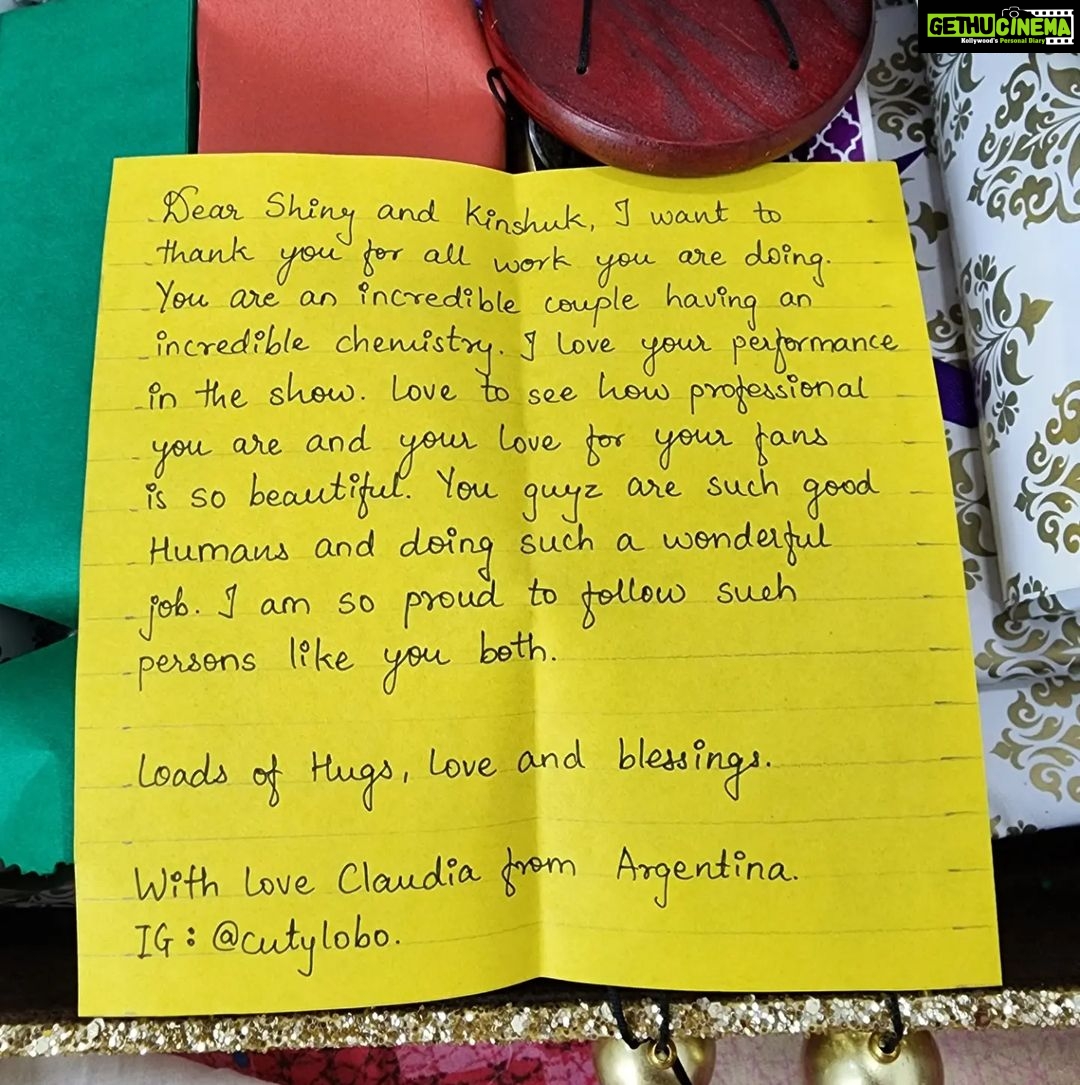 GETHUCINEMA
Kollywood's Personal Diary
Dear Shiny and Kinshuk, I want to
thank you for all work you are doing.
You are an incredible couple having an
incredible chemistry. I love your performance
in the show. Love to see how professional
you are and your love for your fans
is so beautiful. You guyz are such good
Humans and doing such a wonderful
job. I am so proud to follow such
persons like you both.
Loads of Hugs, Love and blessings.
With Love Claudia from Argentina.
IG : @cutylobo.